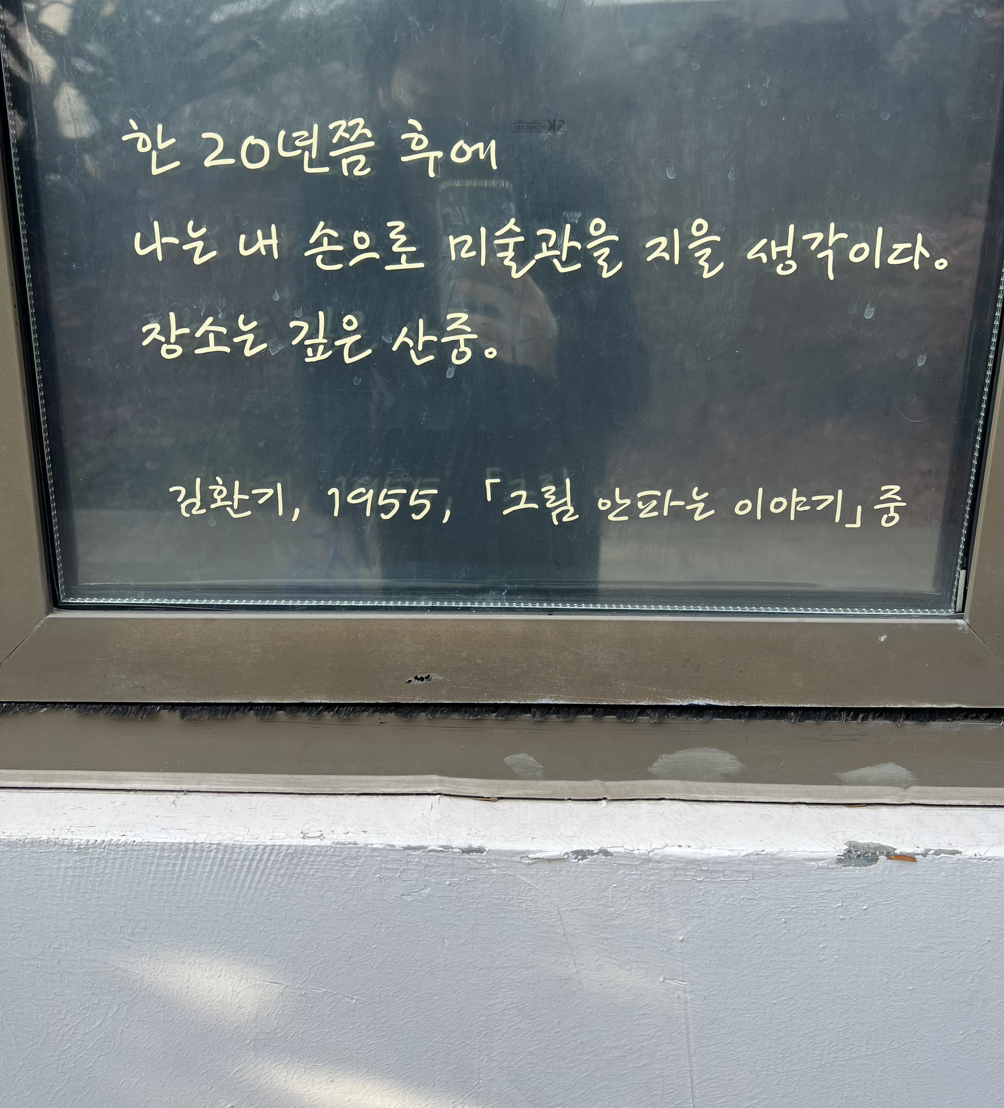 한 20년쯤 후에
나는 내 손으로 미술관을 지을 생각이다.
장소는 깊은 산중.
김환기, 1955, 「그림 안파는 이야기」 중